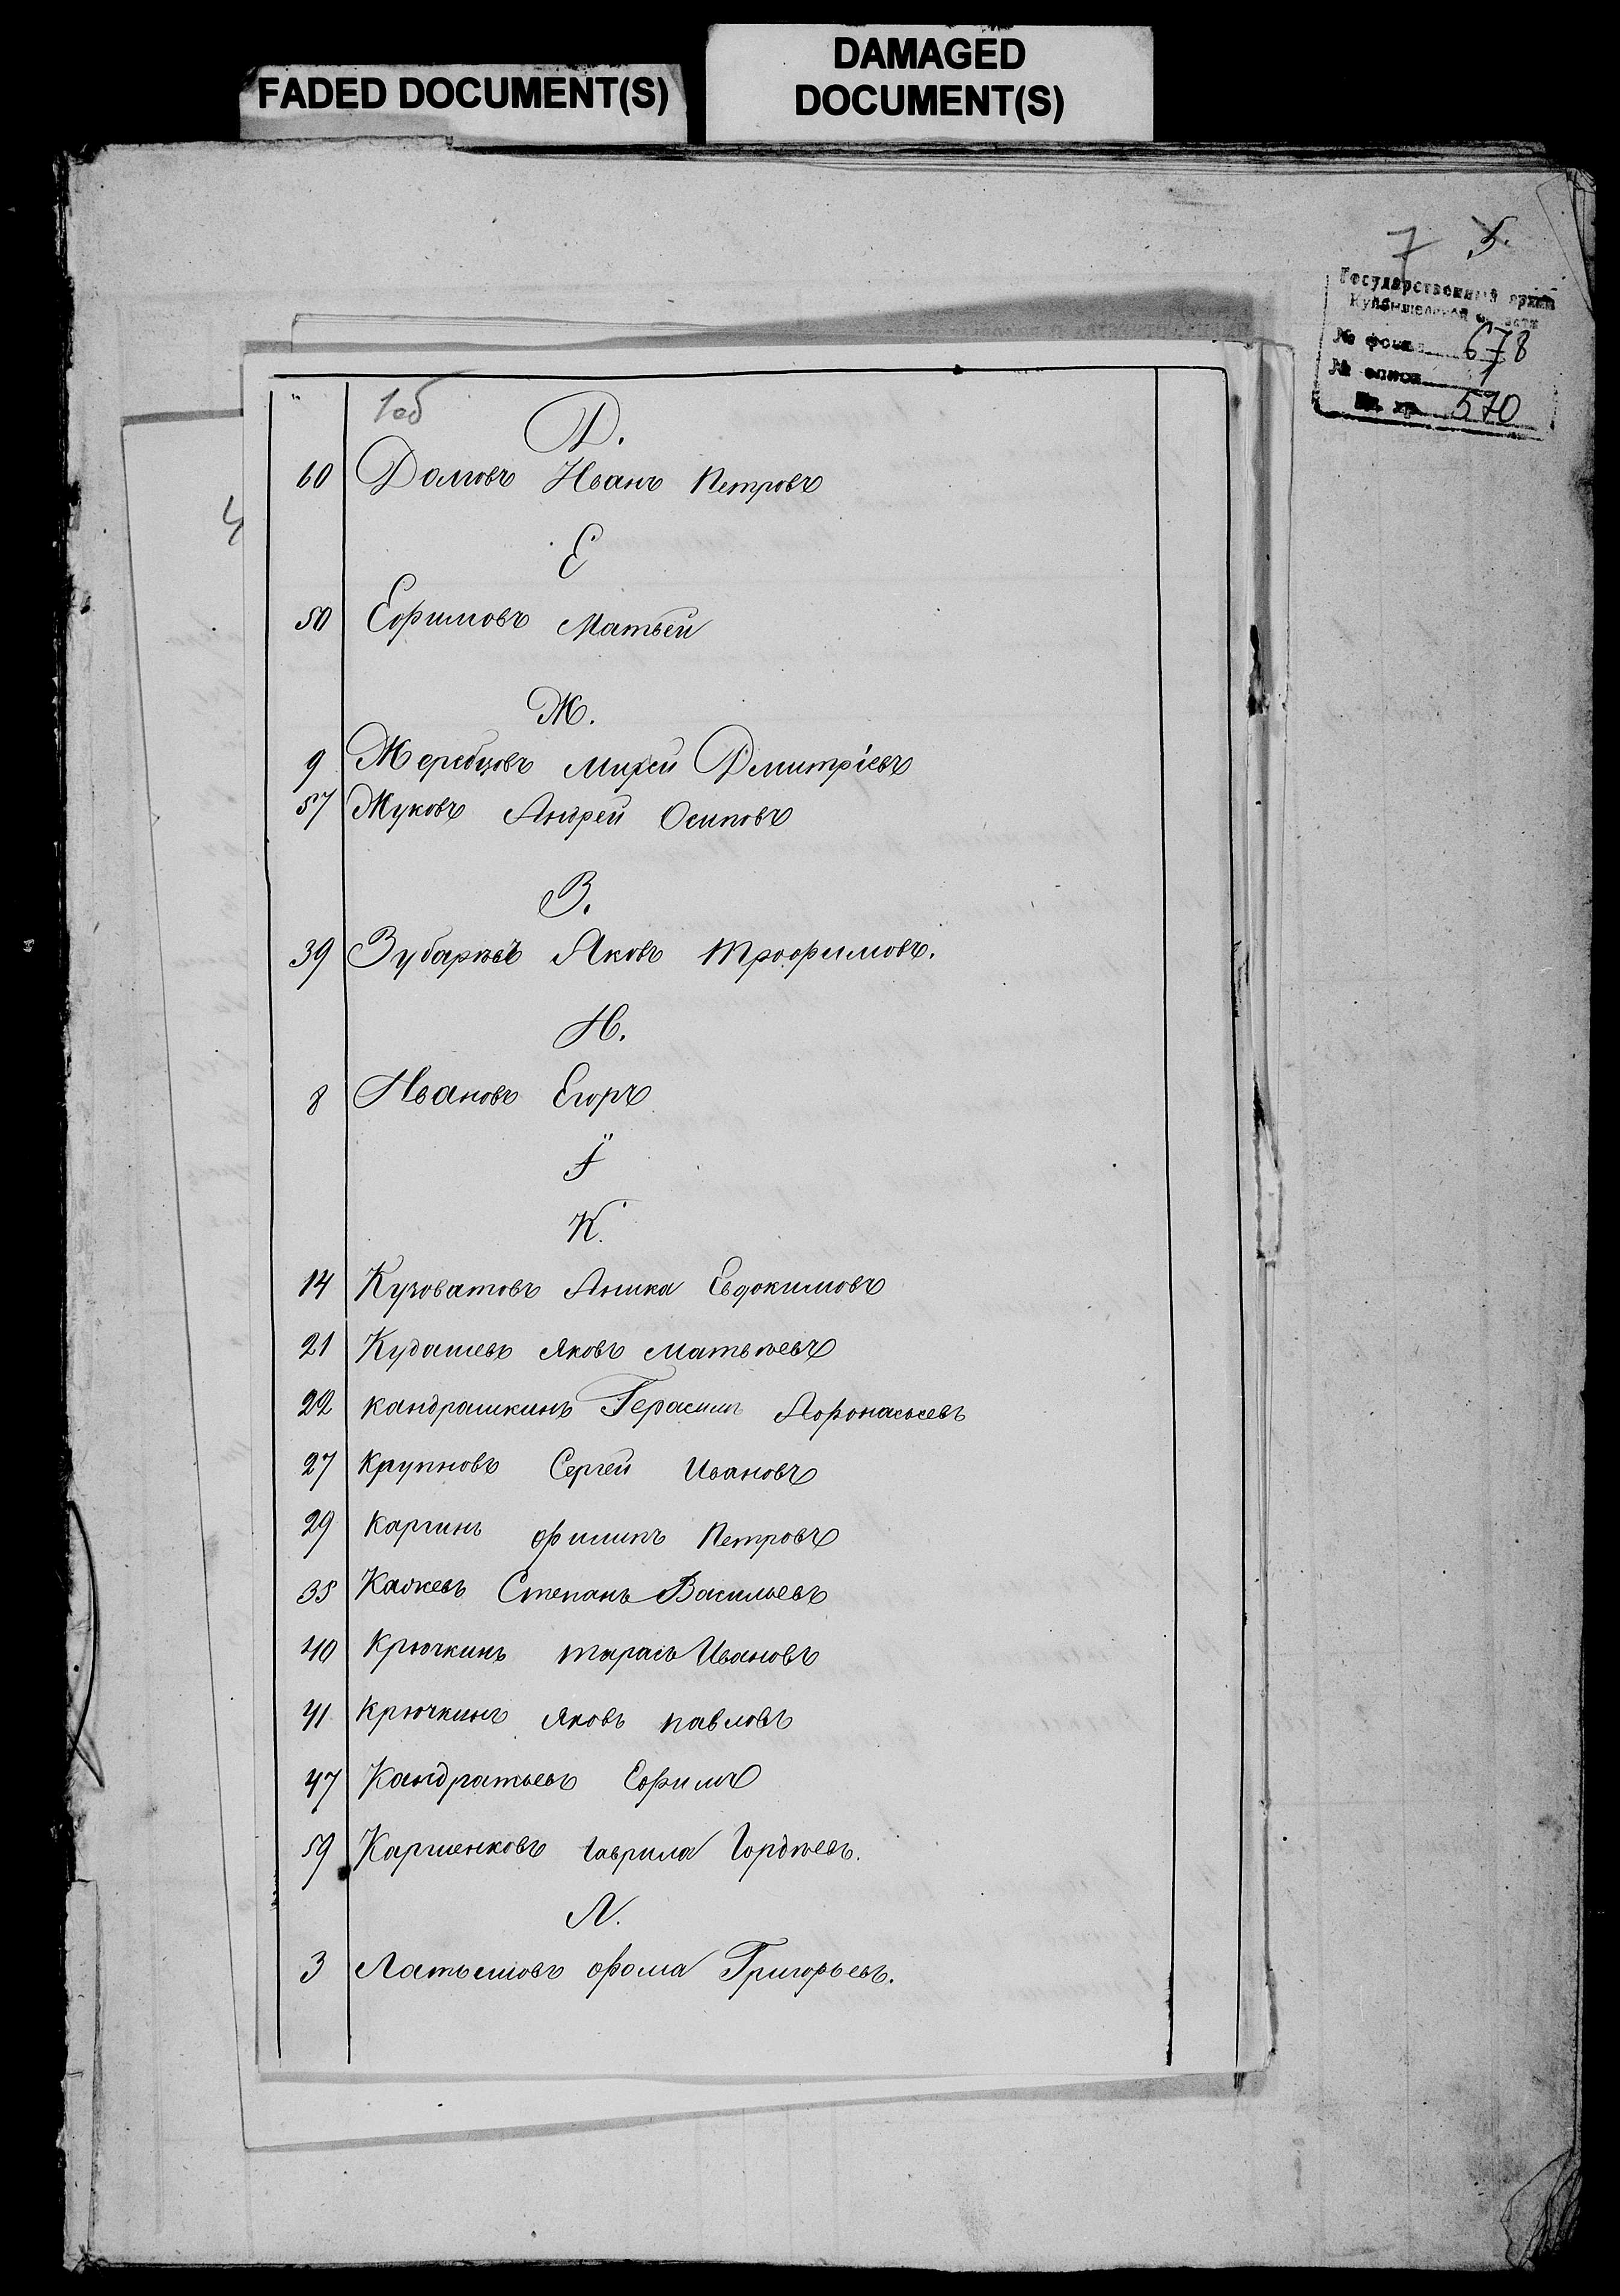 FADED DOCUMENT(S)
DAMAGED
DOCUMENT(S)
7 5.
Государственный архив
Куйбышевской области
№ фонда 678
№ описи 1
№ хр. 570
4
1об
Д.
60 Домовъ Иванъ Петровъ
Е
50 Ефимовъ Матвей
Ж.
9 Жеребцовъ Михей Дмитріевъ
57 Жуковъ Андрей Осиповъ
З.
39 Зубаревъ Яковъ Трофимовъ.
И.
8 Ивановъ Егоръ
Ї
К.
14 Кузоватовъ Аника Евдокимовъ
21 Кудашевъ Яковъ Матвѣевъ
22 Кандрашкинъ Герасимъ Афонасьевъ
27 Крупновъ Сергей Ивановъ
29 Каргинъ Филипъ Петровъ
35 Степанъ Васильевъ
40 Крючкинъ Тарасъ Ивановъ
41 Крючкинъ Яковъ Павловъ
47 Кандратьевъ Ефимъ
59 Гаврила Гордѣевъ.
Л.
3 Латышовъ Фома Григорьевъ.